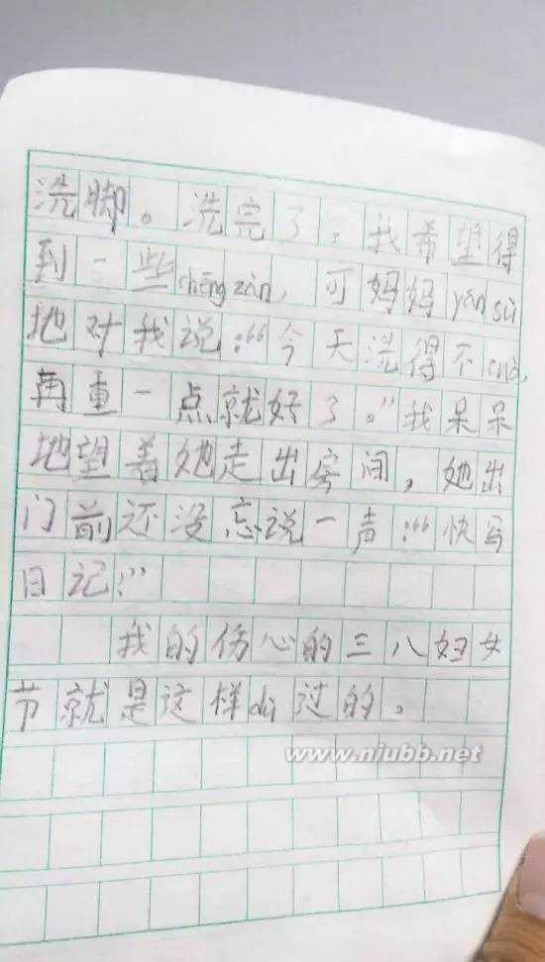 洗脚。洗完了，我希望得
到一些chēng zàn，可妈妈yán sù
地对我说：“今天洗得不cuò，
再重一点就好了。”我呆呆
地望着她走出房间，她出
门前还没忘说一声：“快写
日记！”
我的伤心的三八妇女
节就是这样dù过的。
www.niubb.net